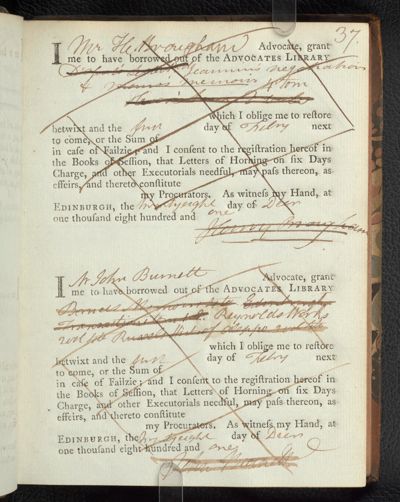 37.
I Mr H. Brougham Advocate, grant
me to have borrowed out of the ADVOCATES LIBRARY
Jeannin's negotiation
& Memoirs
which I oblige me to reſtore
betwixt and the firſt day of Febry next
to come, or the Sum of
in caſe of Failzie; and I conſent to the regiſtration hereof in
the Books of Seſſion, that Letters of Horning on ſix Days
Charge, and other Executorials needful, may paſs thereon, as
effeirs, and thereto conſtitute
my Procurators. As witneſs my Hand, at
EDINBURGH, the twentyeight day of Decr
one thouſand eight hundred and one
Henry Brougham
I Mr John Burnett Advocate, grant
me to have borrowed out of the ADVOCATES LIBRARY
Edinburgh
Transactions Reynolds Works
2 vol Russell's Hist of Aleppo 2 vol
which I oblige me to reſtore
betwixt and the firſt day of Febry next
to come, or the Sum of
in caſe of Failzie; and I conſent to the regiſtration hereof in
the Books of Seſſion, that Letters of Horning on ſix Days
Charge, and other Executorials needful, may paſs thereon, as
effeirs, and thereto conſtitute
my Procurators. As witneſs my Hand, at
EDINBURGH, the twentyeight day of Decr
one thouſand eight hundred and one
John Burnett